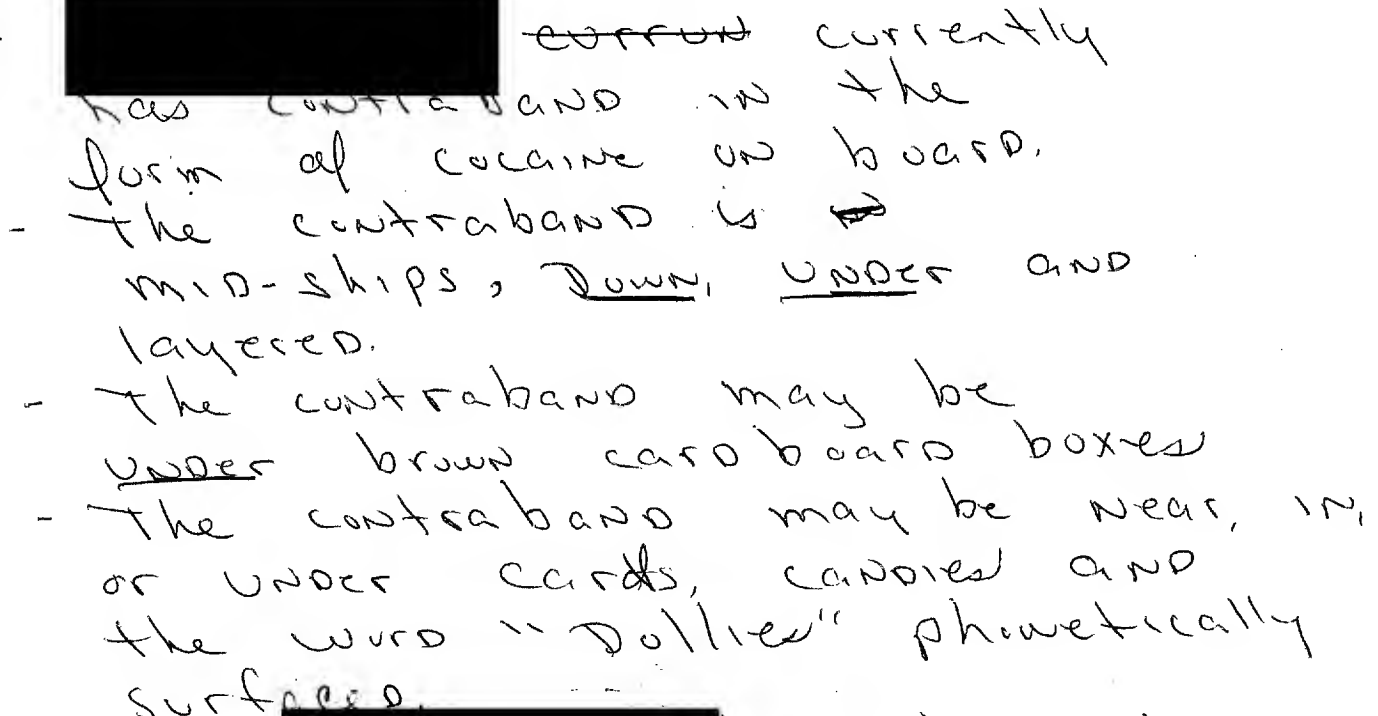 - currun currently
has contraband in the
form of cocaine on board.
- The contraband is
mid-ships, Down, Under and
layered.
- The contraband may be
Under brown cardboard boxes
- The contraband may be near, in,
or under cards, candies and
the word "Dollies" phonetically
surfaced.